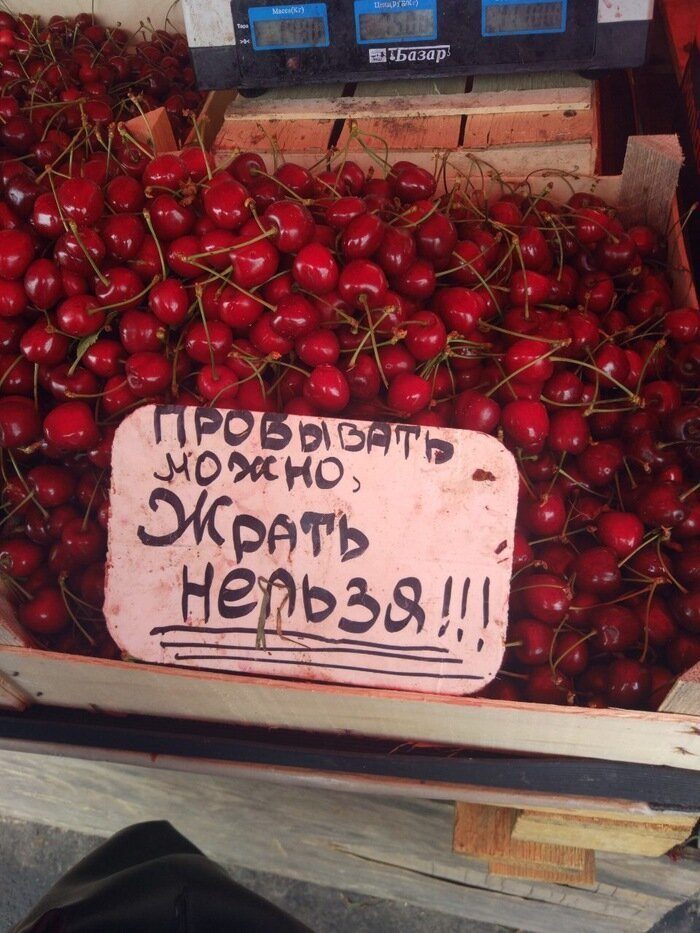 Масса(Кг)
Цена(РУБ/Кг)
Тара
Базар
ПРОБЫВАТЬ
МОЖНО,
ЖРАТЬ
НЕЛЬЗЯ!!!